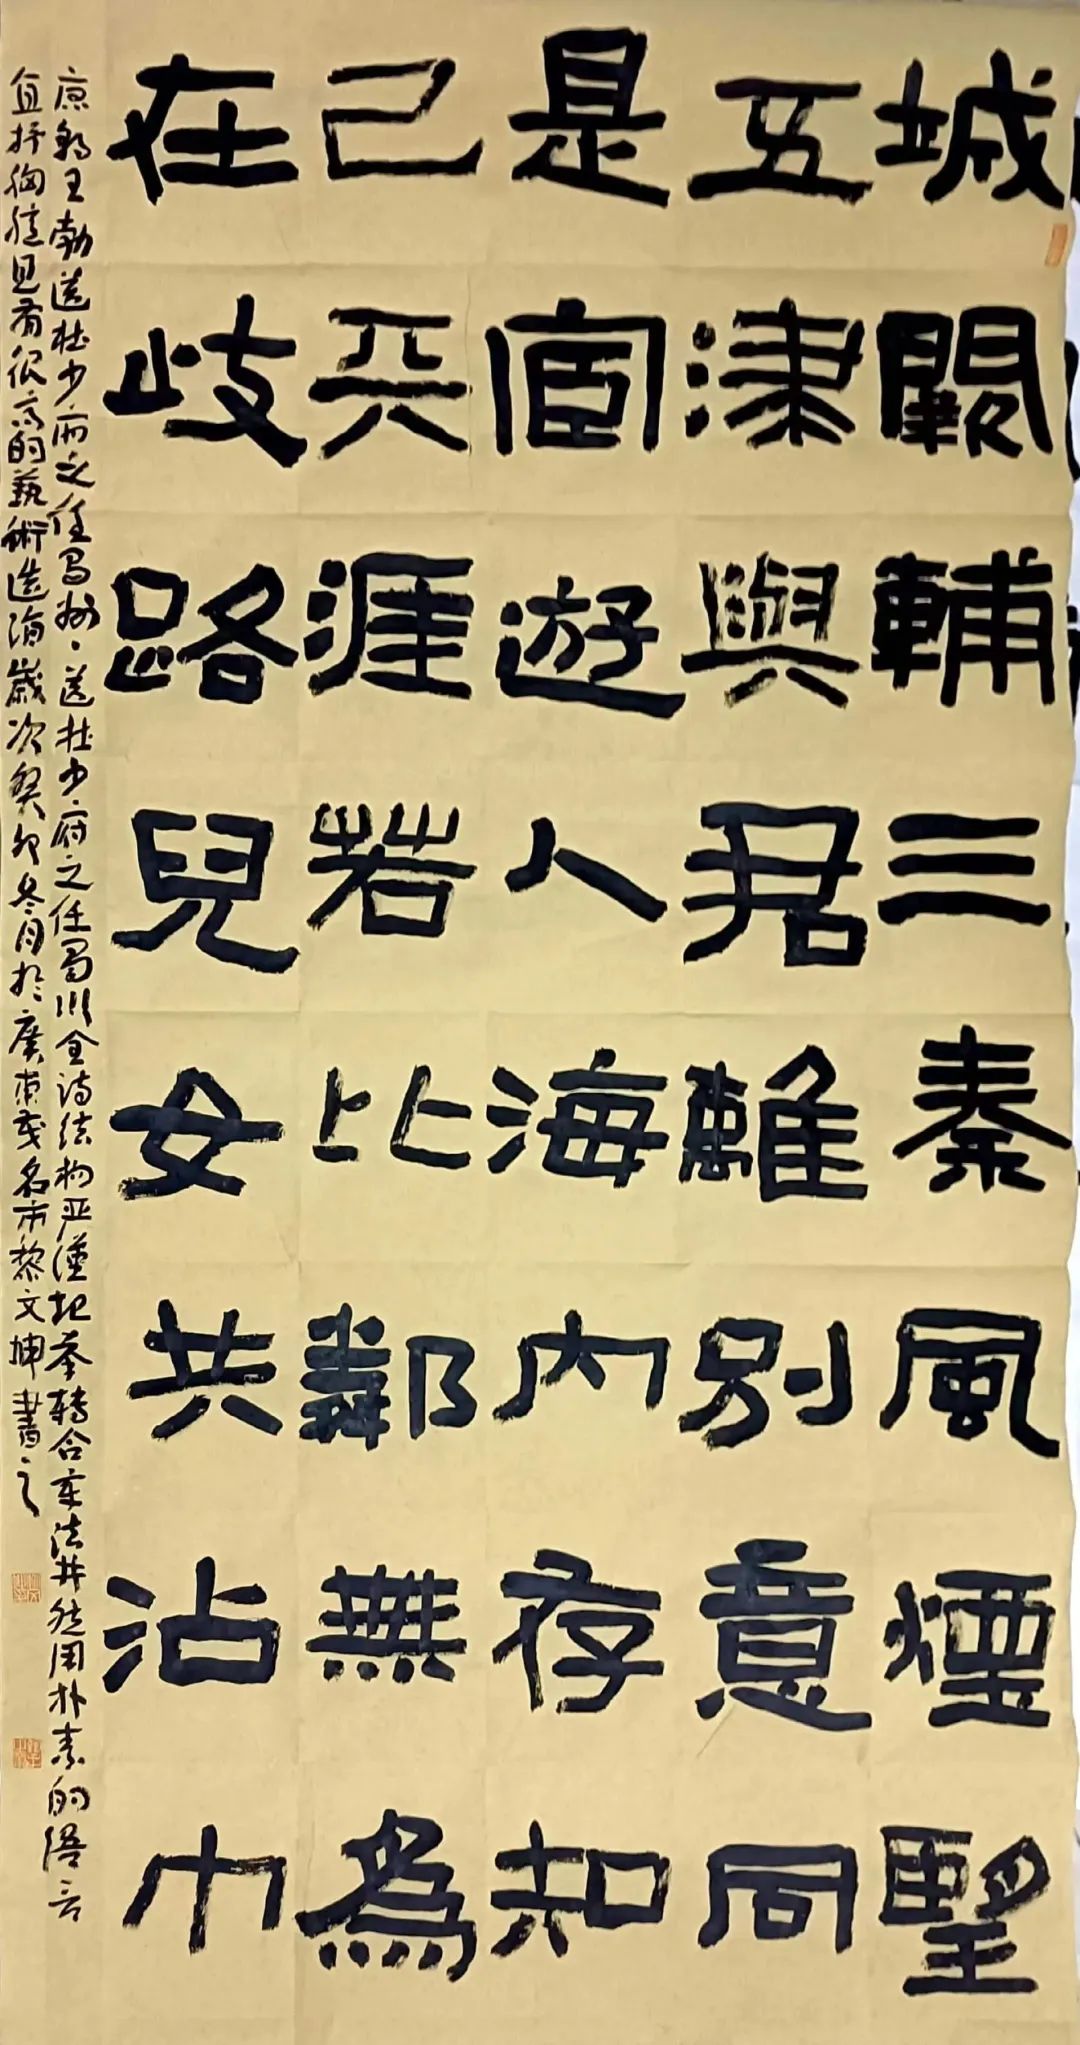 城闕輔三秦風煙望
五津與君離別意同
是宦遊人海内存知
己天涯若比鄰無為
在歧路兒女共沾巾
唐朝王勃送杜少府之任蜀州、送杜少府之任蜀川全诗结构严谨起承轉合章法井然用朴素的语言
直抒胸臆具有很高的藝術造诣歲次癸卯冬月於廣東茂名市黎文坤書之